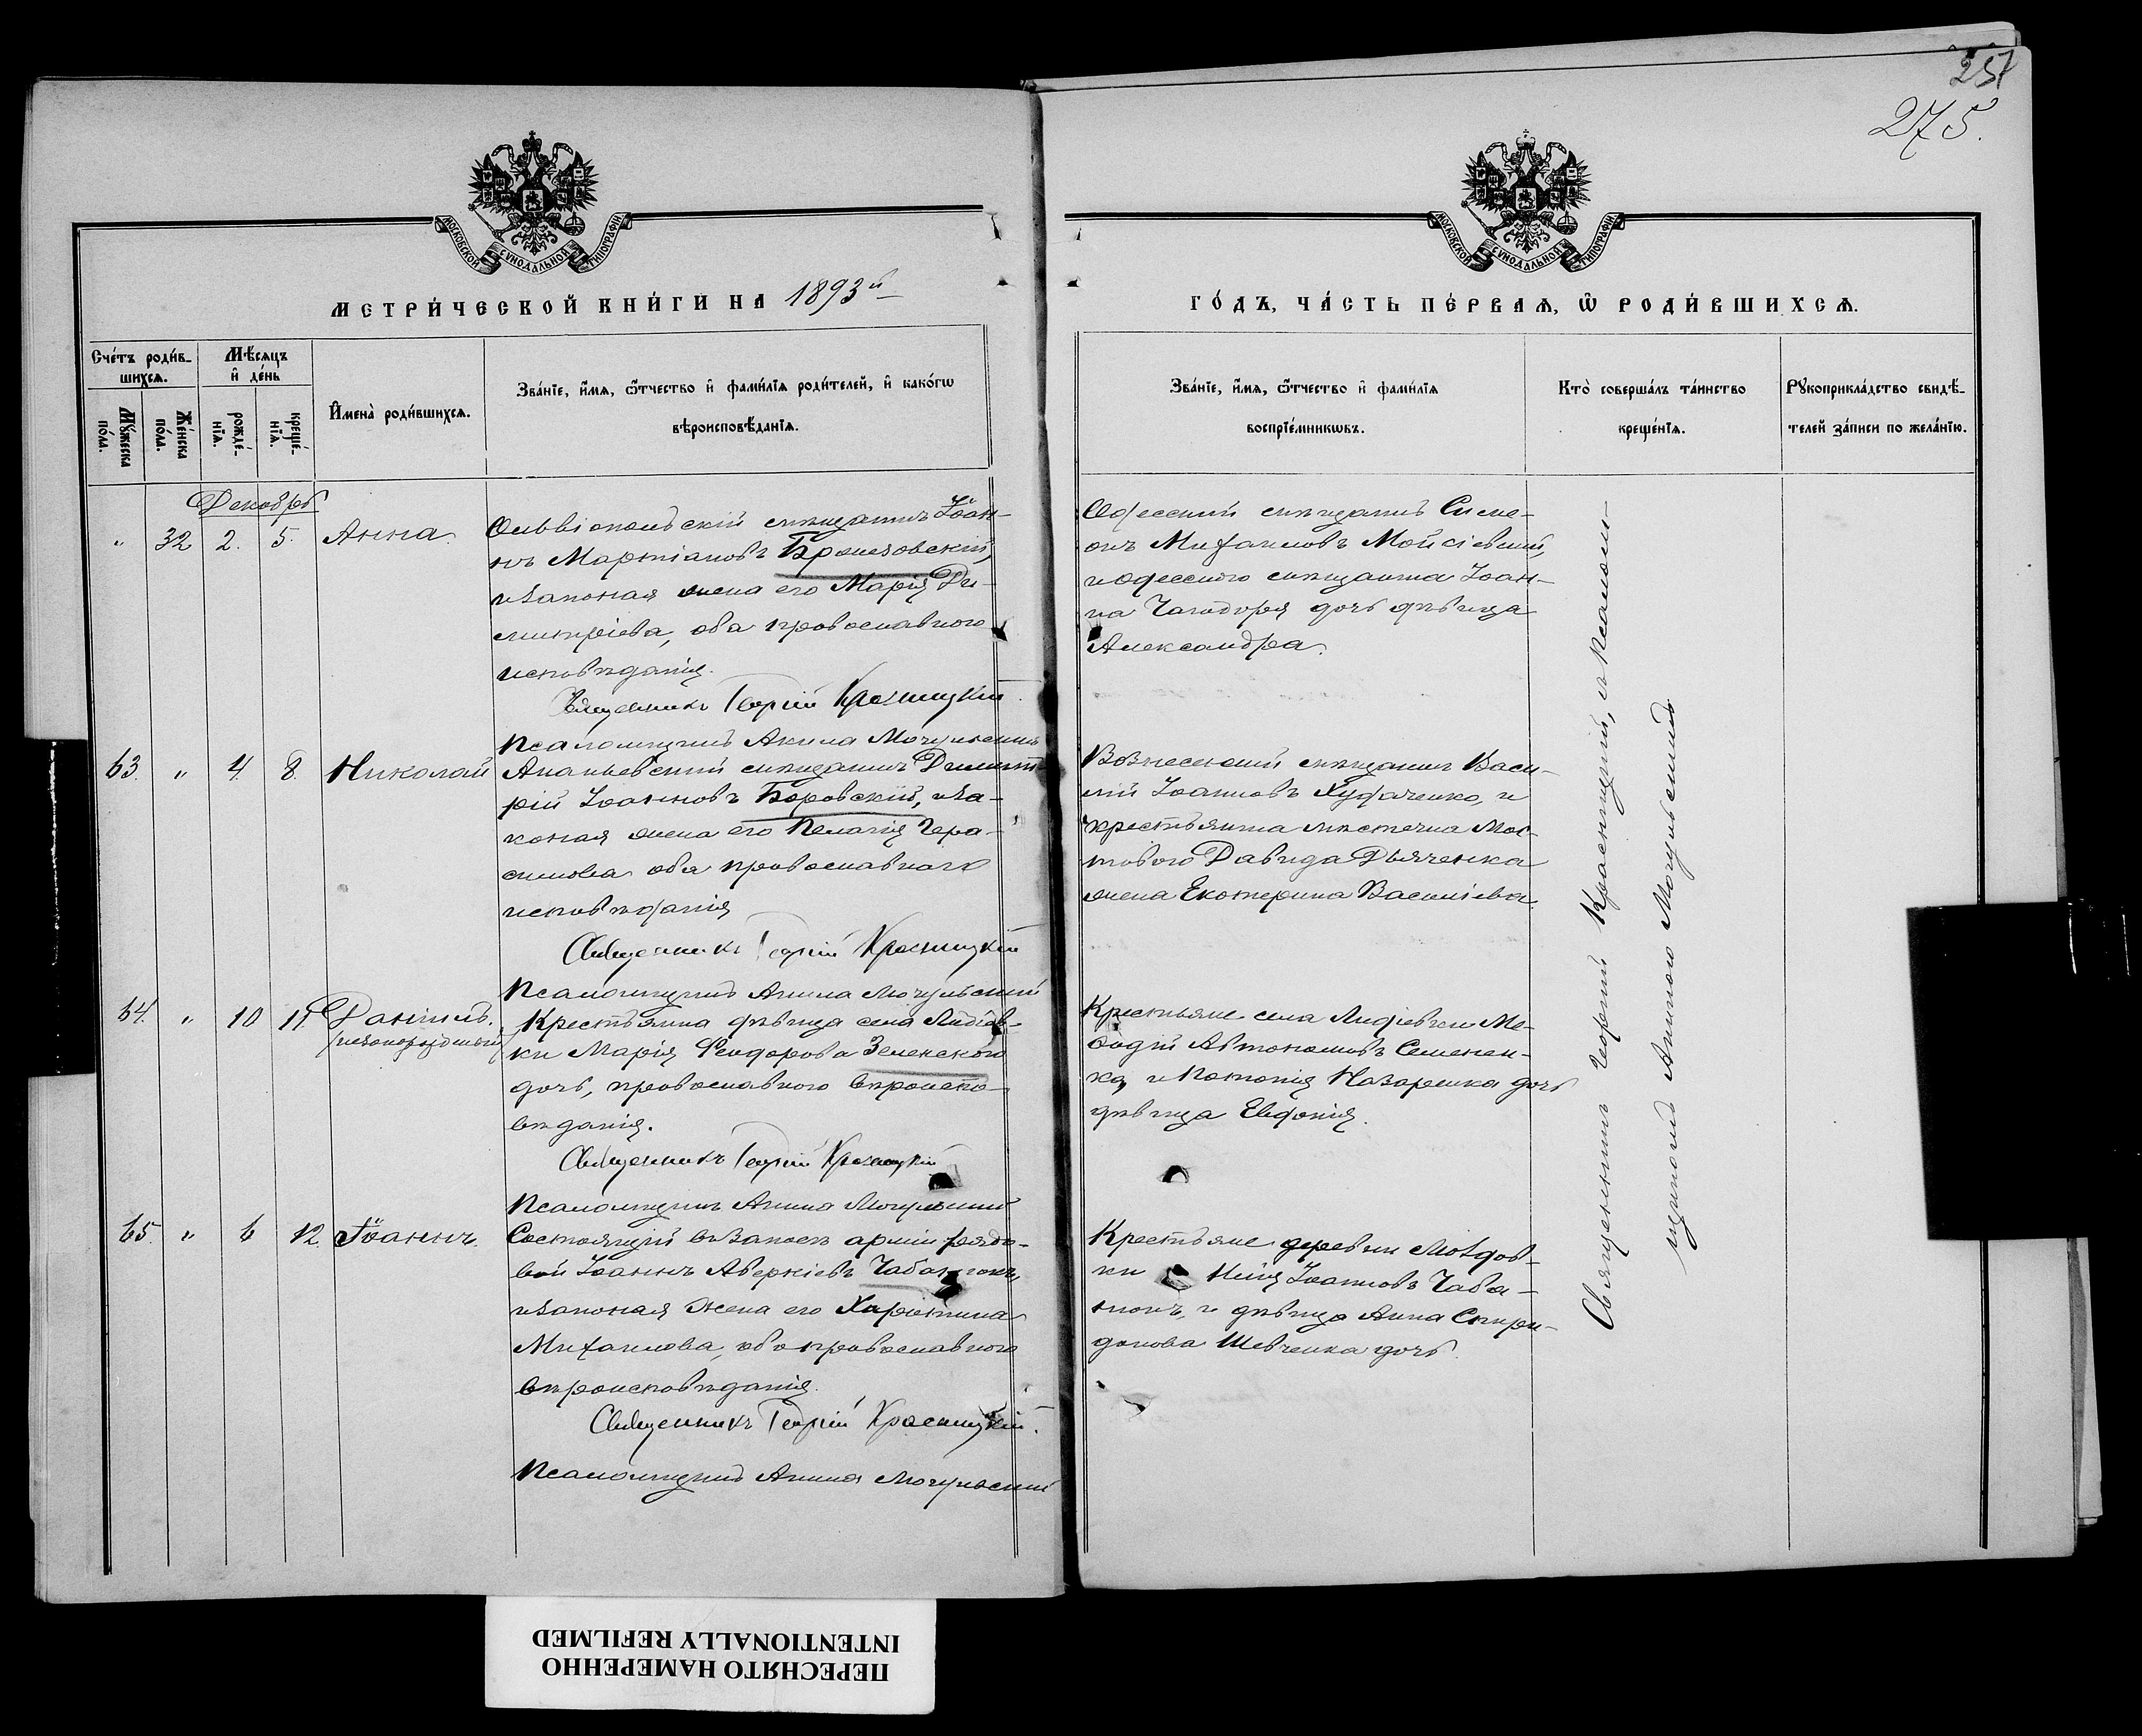 257
275.
МОСКОВСКОЙ СѴНОДАЛЬНОЙ ТИПОГРАФІИ
МОСКОВСКОЙ СѴНОДАЛЬНОЙ ТИПОГРАФІИ
МЕТРИ́ЧЕСКОЙ КНИ́ГИ НА 1893й
ГО́ДЪ, ЧА́СТЬ ПЕ́РВАѦ, Ѿ РОДИ́ВШИХСѦ.
Сче́тъ роди́в-
шихсѧ.
Мꙋ́жеска
по́ла.
Же́нска
по́ла.
Мѣ́сѧцъ
и҆ де́нь
рожде́-
нїѧ.
креще́-
нїѧ.
И҆мена̀ роди́вшихсѧ.
Зва́нїе, и҆́мѧ, ѻ҆́тчество и҆ фами́лїѧ роди́телей, и҆ како́гѡ
вѣроисповѣ́данїѧ.
Зва́нїе, и҆́мѧ, ѻ҆́тчество и҆ фами́лїѧ
воспрїе́мникѡвъ.
Кто̀ соверша́лъ та́инство
креще́нїѧ.
Рꙋкоприкла́дство свидѣ́-
телей за́писи по жела́нїю.
Декабрь
" 32 2. 5. Анна.
Ольвіопольскій мѣщанинъ Іоан-
нъ Мартіановъ
и законная жена его Марія Ди-
митріева, оба православнаго
исповѣданія.
Священникъ Георгій Красницкій.
Псаломщикъ Акила Мочульскій
Одесскій мѣщанинъ Симе-
онъ Михаиловъ Мойсіевскій,
и одесскаго мѣщанина Іоан-
на дочь дѣвица
Александра.
63. " 4. 8. Николай
Ананьевскій мѣщанинъ Димит-
рій Іоанновъ Боровскій, и за-
конная жена его Пелагія Гера-
симова оба православнаго
исповѣданія
Священникъ Георгій Красницкій
Псаломщикъ Акила Мочульскій
Вознесенскій мѣщанинъ Васи-
лій Іоанновъ Худаченко, и
крестьянина мѣстечка Мос-
товаго Давида Дьяченка
жена Екатерина Василіева.
64. " 10 11 Даніилъ.
/незаконорожденный/
Крестьянка дѣвица села Лидіев-
ки Марія Феодорова Зеленскаго
дочь, православнаго вѣроиспо-
вѣданія.
Священникъ Георгій Красницкій
Псаломщикъ Акила Мочульскій
Крестьяне села Лидіевки Ме-
ѳодій Автономовъ Семенен-
ко, и Назаренка дочь
дѣвица Евдокія.
65. " 6 12. Іоаннъ.
Состоящій въ запасѣ арміи рядо-
вой Іоаннъ Аверкіевъ
и законная жена его Харитина
Михаилова, оба православнаго
вѣроисповѣданія.
Священникъ Георгій Красницкій.
Псаломщикъ Акила Мочульскій
Крестьяне деревни Молдов-
ки Іоанновъ Чаба-
нюкъ, и дѣвица Анна Спири-
донова Шевченка дочь.
Священникъ Георгій Красницкій, и Псалом-
щикъ Мочульскій
ПЕРЕСНЯТО НАМЕРЕННО
INTENTIONALLY REFILMED